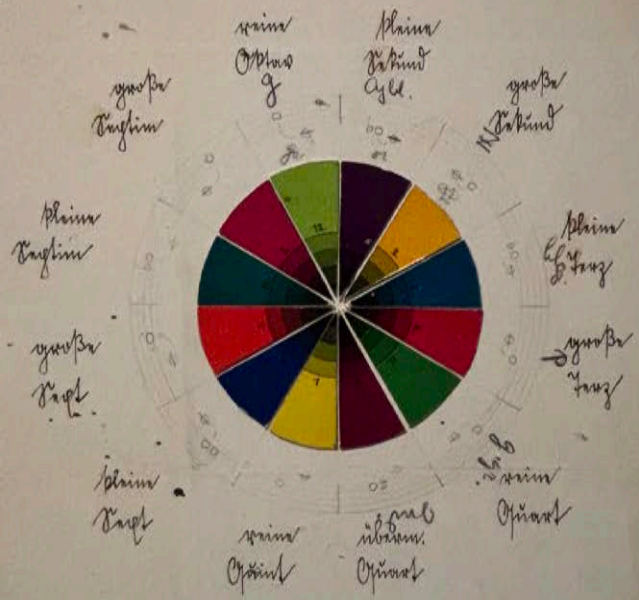 reine
Oktav
kleine
Sekund
große
Sekund
kleine
Terz
große
Terz
reine
Quart
überm.
Quart
reine
Quint
kleine
Sext
große
Sext
kleine
Septim
große
Septim
12
7